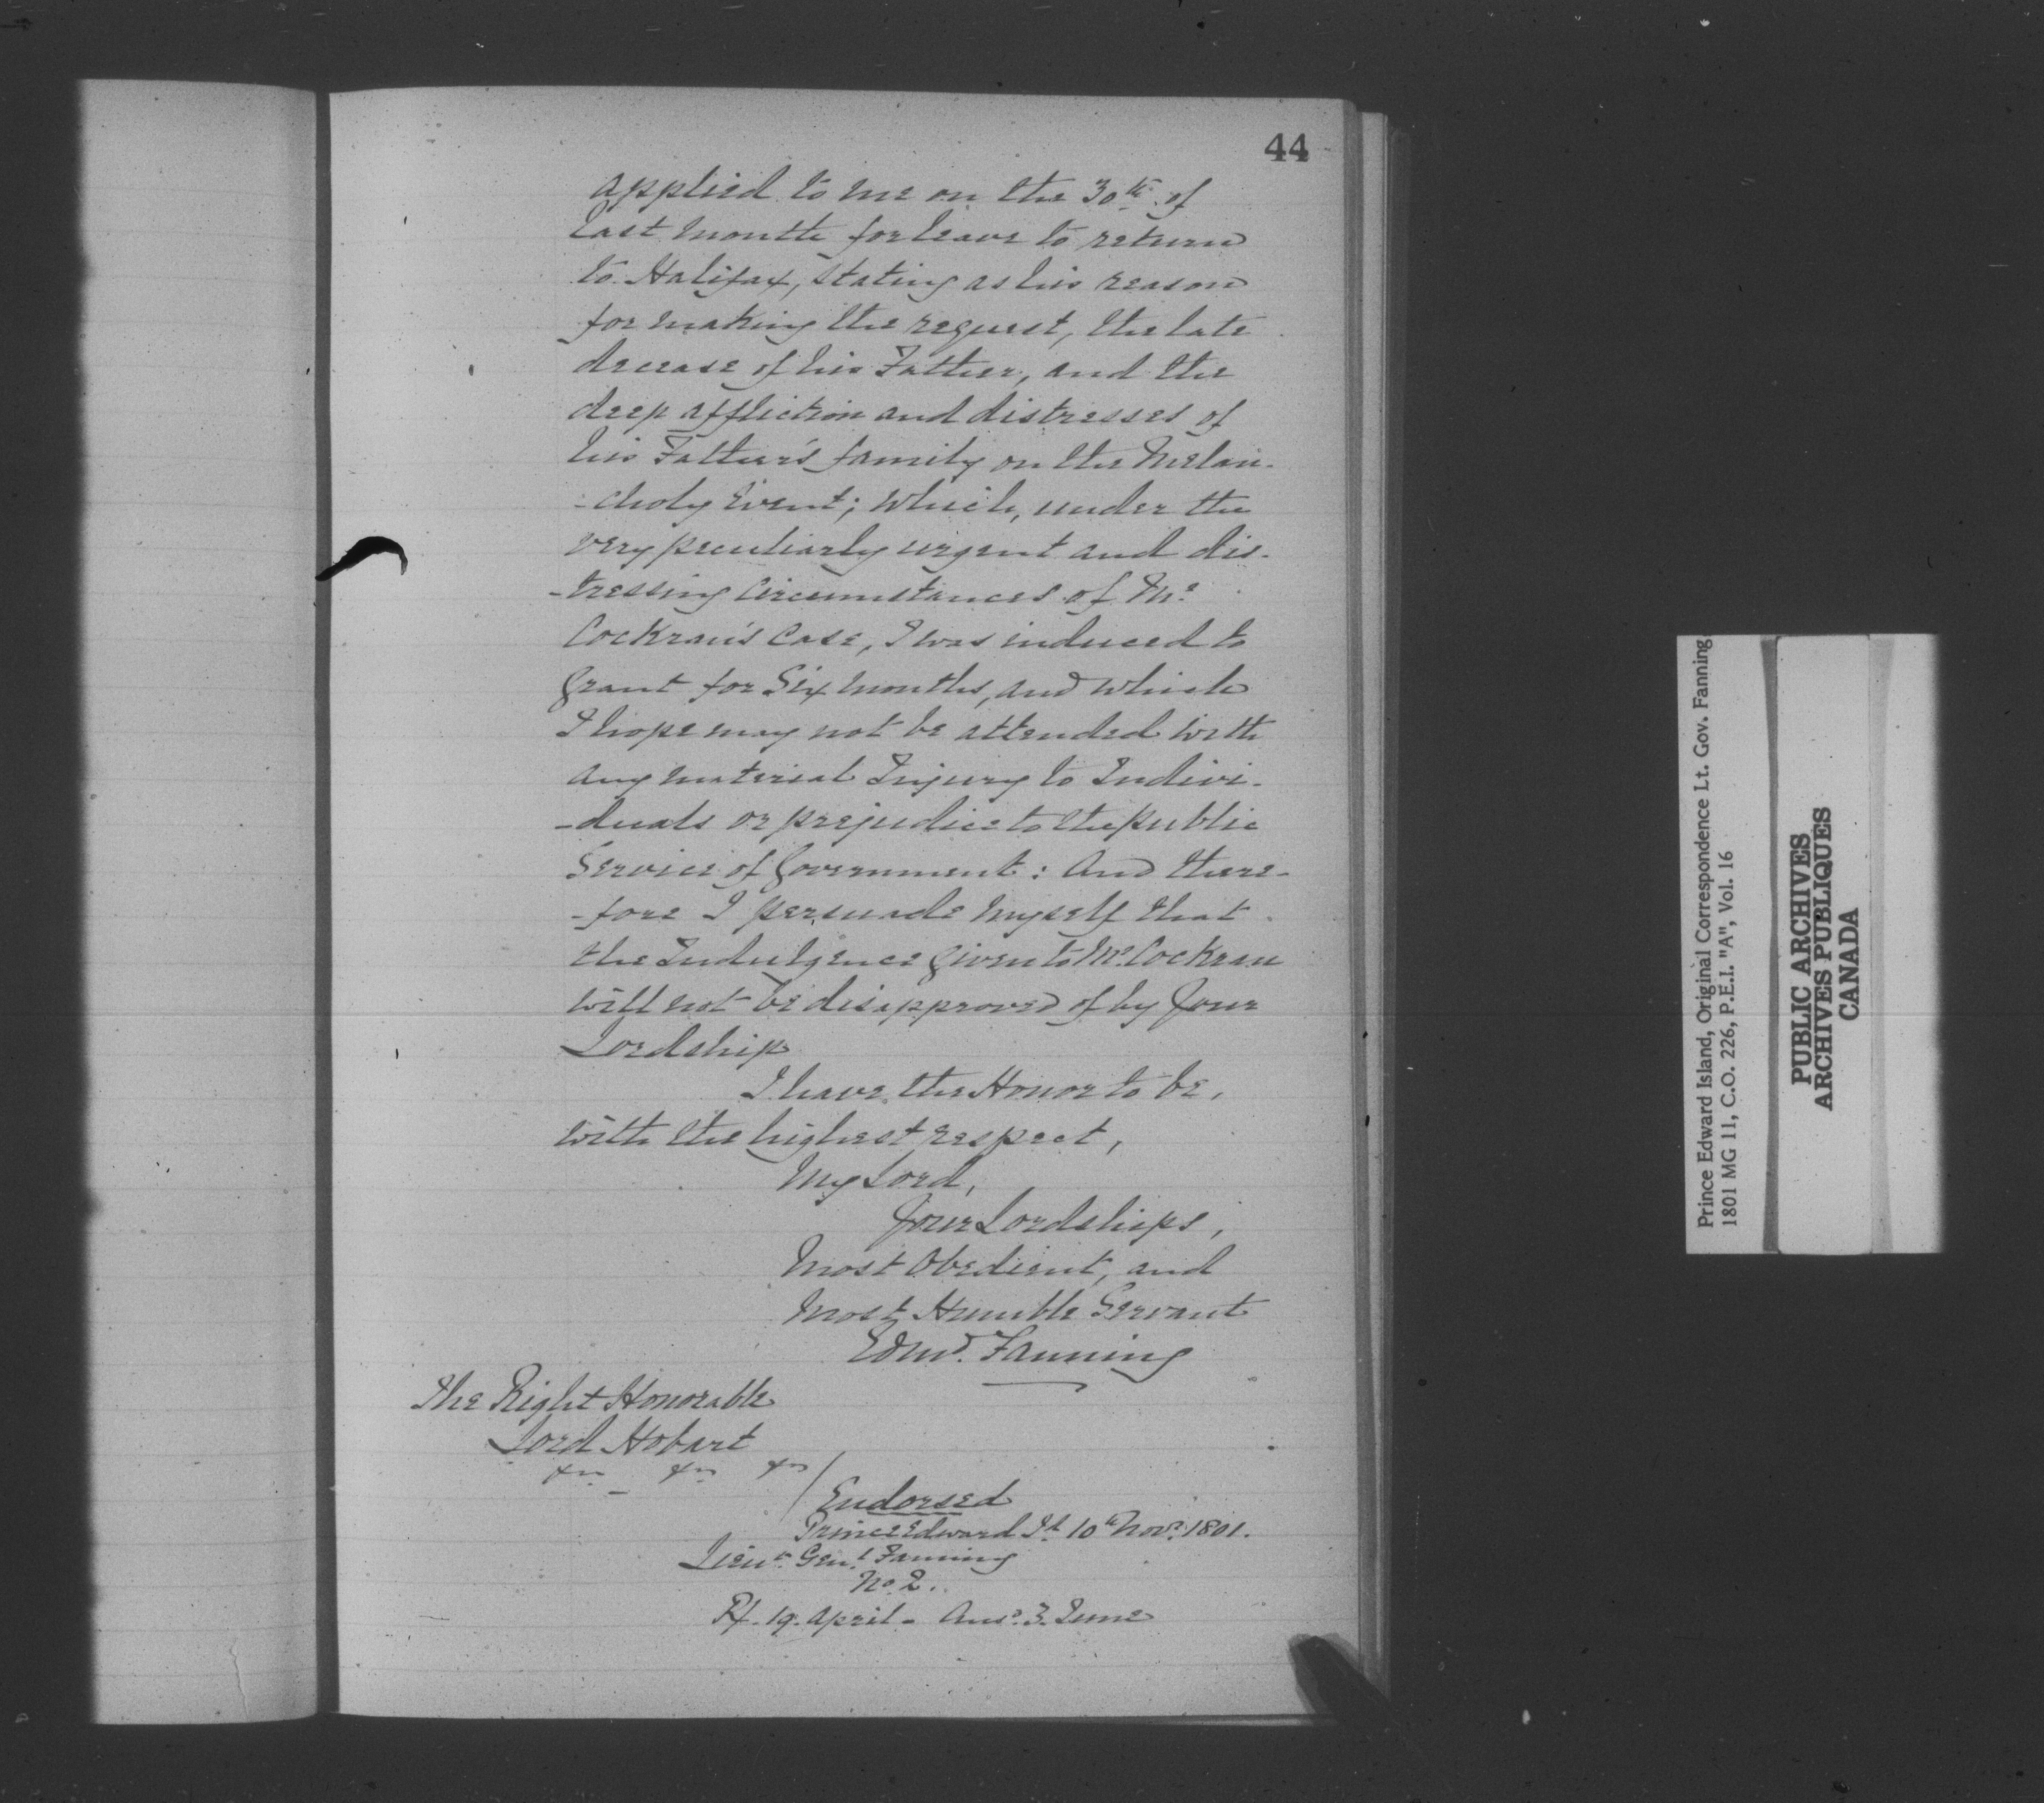 44
applied to me on the 30th of
last month for leave to return
to Halifax, stating as his reason
for making the request, the late
decease of his Father, and the
deep affliction and distresses of
his Father's family on the Melan-
-choly Event; which, under the
very peculiarly urgent and dis-
-tressing Circumstances of Mr
Cockran's Case, I was induced to
grant for Six months, and which
I hope may not be attended with
any material Injury to Indivi-
-duals or prejudice to the public
Service of Government: And there-
-fore I persuade myself that
the Indulgence given to Mr Cockran
will not be disapproved of by Your
Lordship
I have the Honor to be,
with the highest respect,
My Lord,
Your Lordships,
Most Obedient, and
Most Humble Servant
Edmd. Fanning
The Right Honorable
Lord Hobart
Endorsed
Prince Edward Id. 10th Novr. 1801.
Lieut. Genl. Fanning
No. 2.
Rd. 19. April - Ansd. 3. June
Prince Edward Island, Original Correspondence Lt. Gov. Fanning
1801 MG 11, C.O. 226, P.E.I. "A", Vol. 16
PUBLIC ARCHIVES
ARCHIVES PUBLIQUES
CANADA